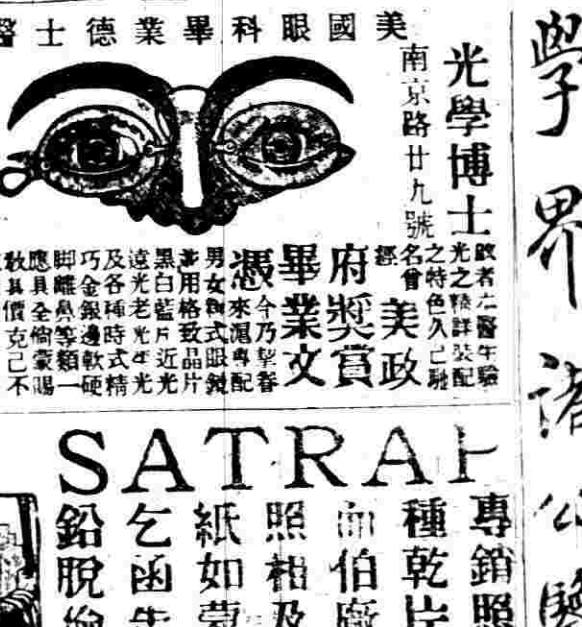 學界諸公鑒
美國眼科畢業德士醫
光學博士
南京路廿九號
啟者 醫生驗
光之精詳裝配
之特色久已馳
名曾經
美政
府獎賞
畢業文
憑今乃挈眷
來滬專配
男女新式眼鏡
並用格致晶片
黑白藍片近光
遠光老光平光
及各種時式精
巧金銀邊軟硬
脚離鼻等類一
應具全倘蒙賜
教其價克己不
SATRAP
專銷照
種乾片
伯廠
照相及
紙如蒙
乞函
鉛脫